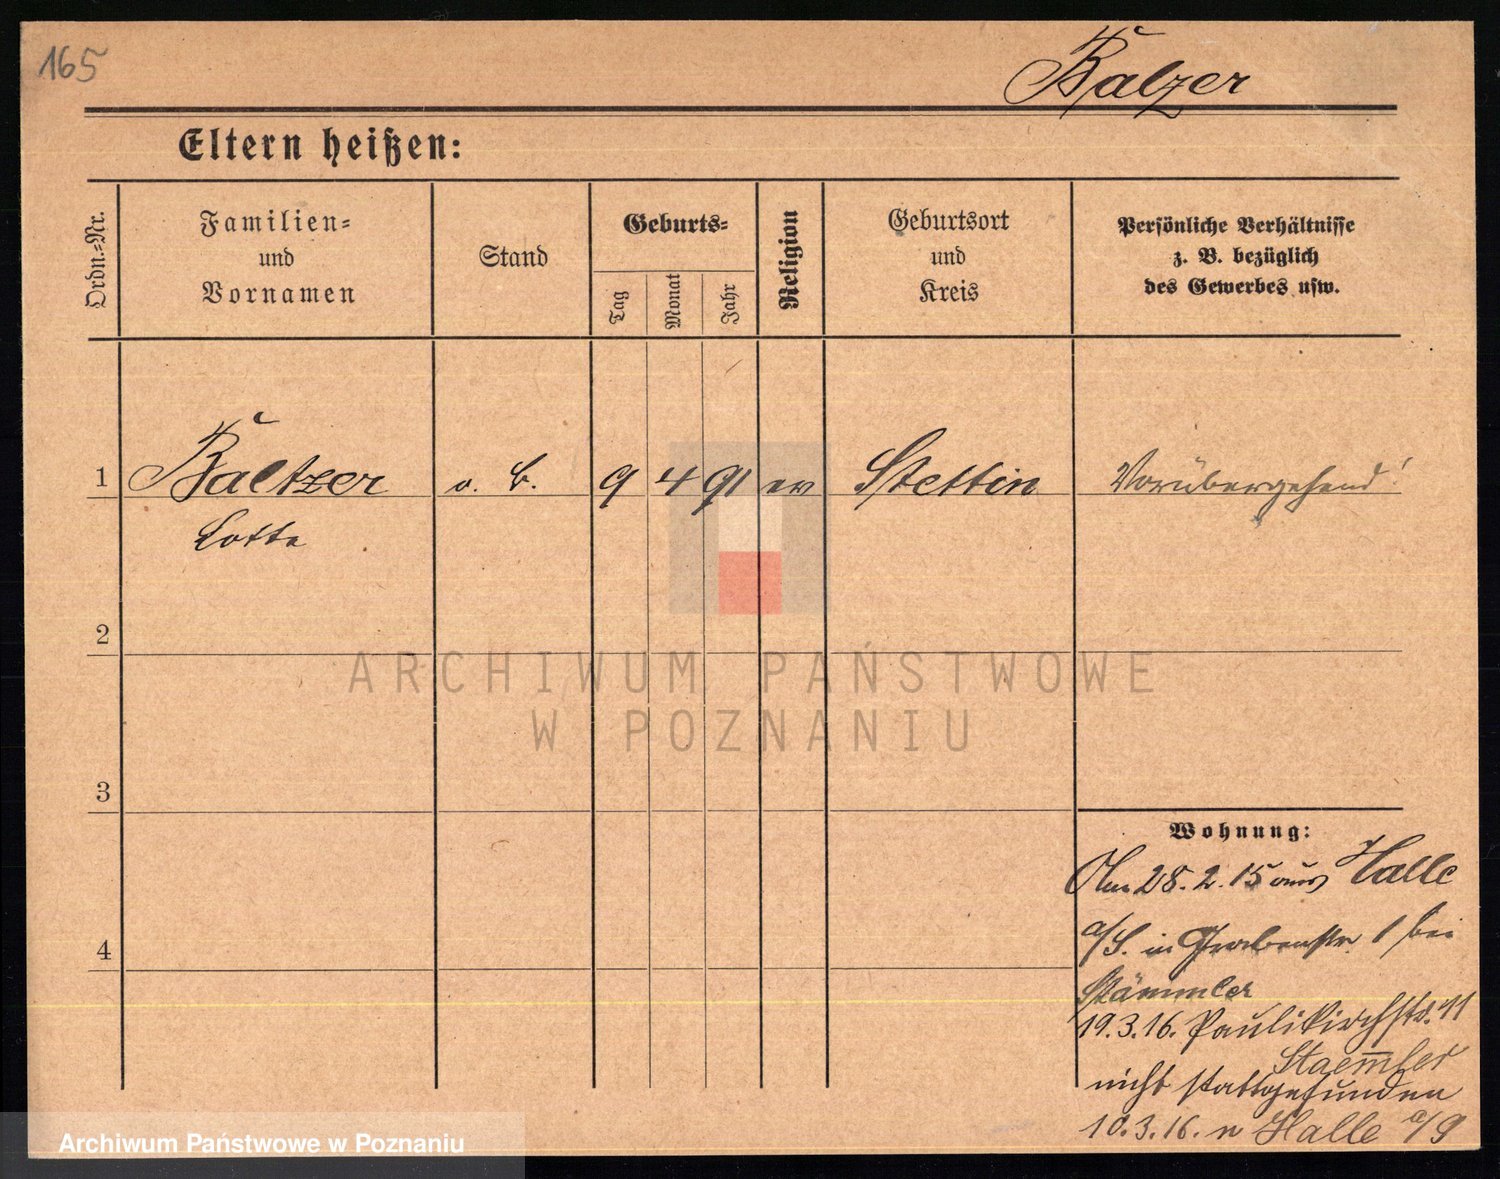 165
Balzer
Eltern heißen:
Ordn.-Nr.
Familien-
und
Vornamen
Stand
Geburts-
Tag
Monat
Jahr
Religion
Geburtsort
und
Kreis
Persönliche Verhältnisse
z. B. bezüglich
des Gewerbes usw.
1 Baltzer o. B. 9 4 91 ev Stettin Vorübergehend!
Lotte
2
3
4
Wohnung:
Am 28. 2. 15 aus Halle
a/S. in Grabenstr. 1 bei
Stämmler
19.3.16. Paulikirchstr. 11
Staem̅ler
nicht stattgefunden
10.3.16. n Halle a/S
ARCHIWUM PAŃSTWOWE
W POZNANIU
Archiwum Państwowe w Poznaniu